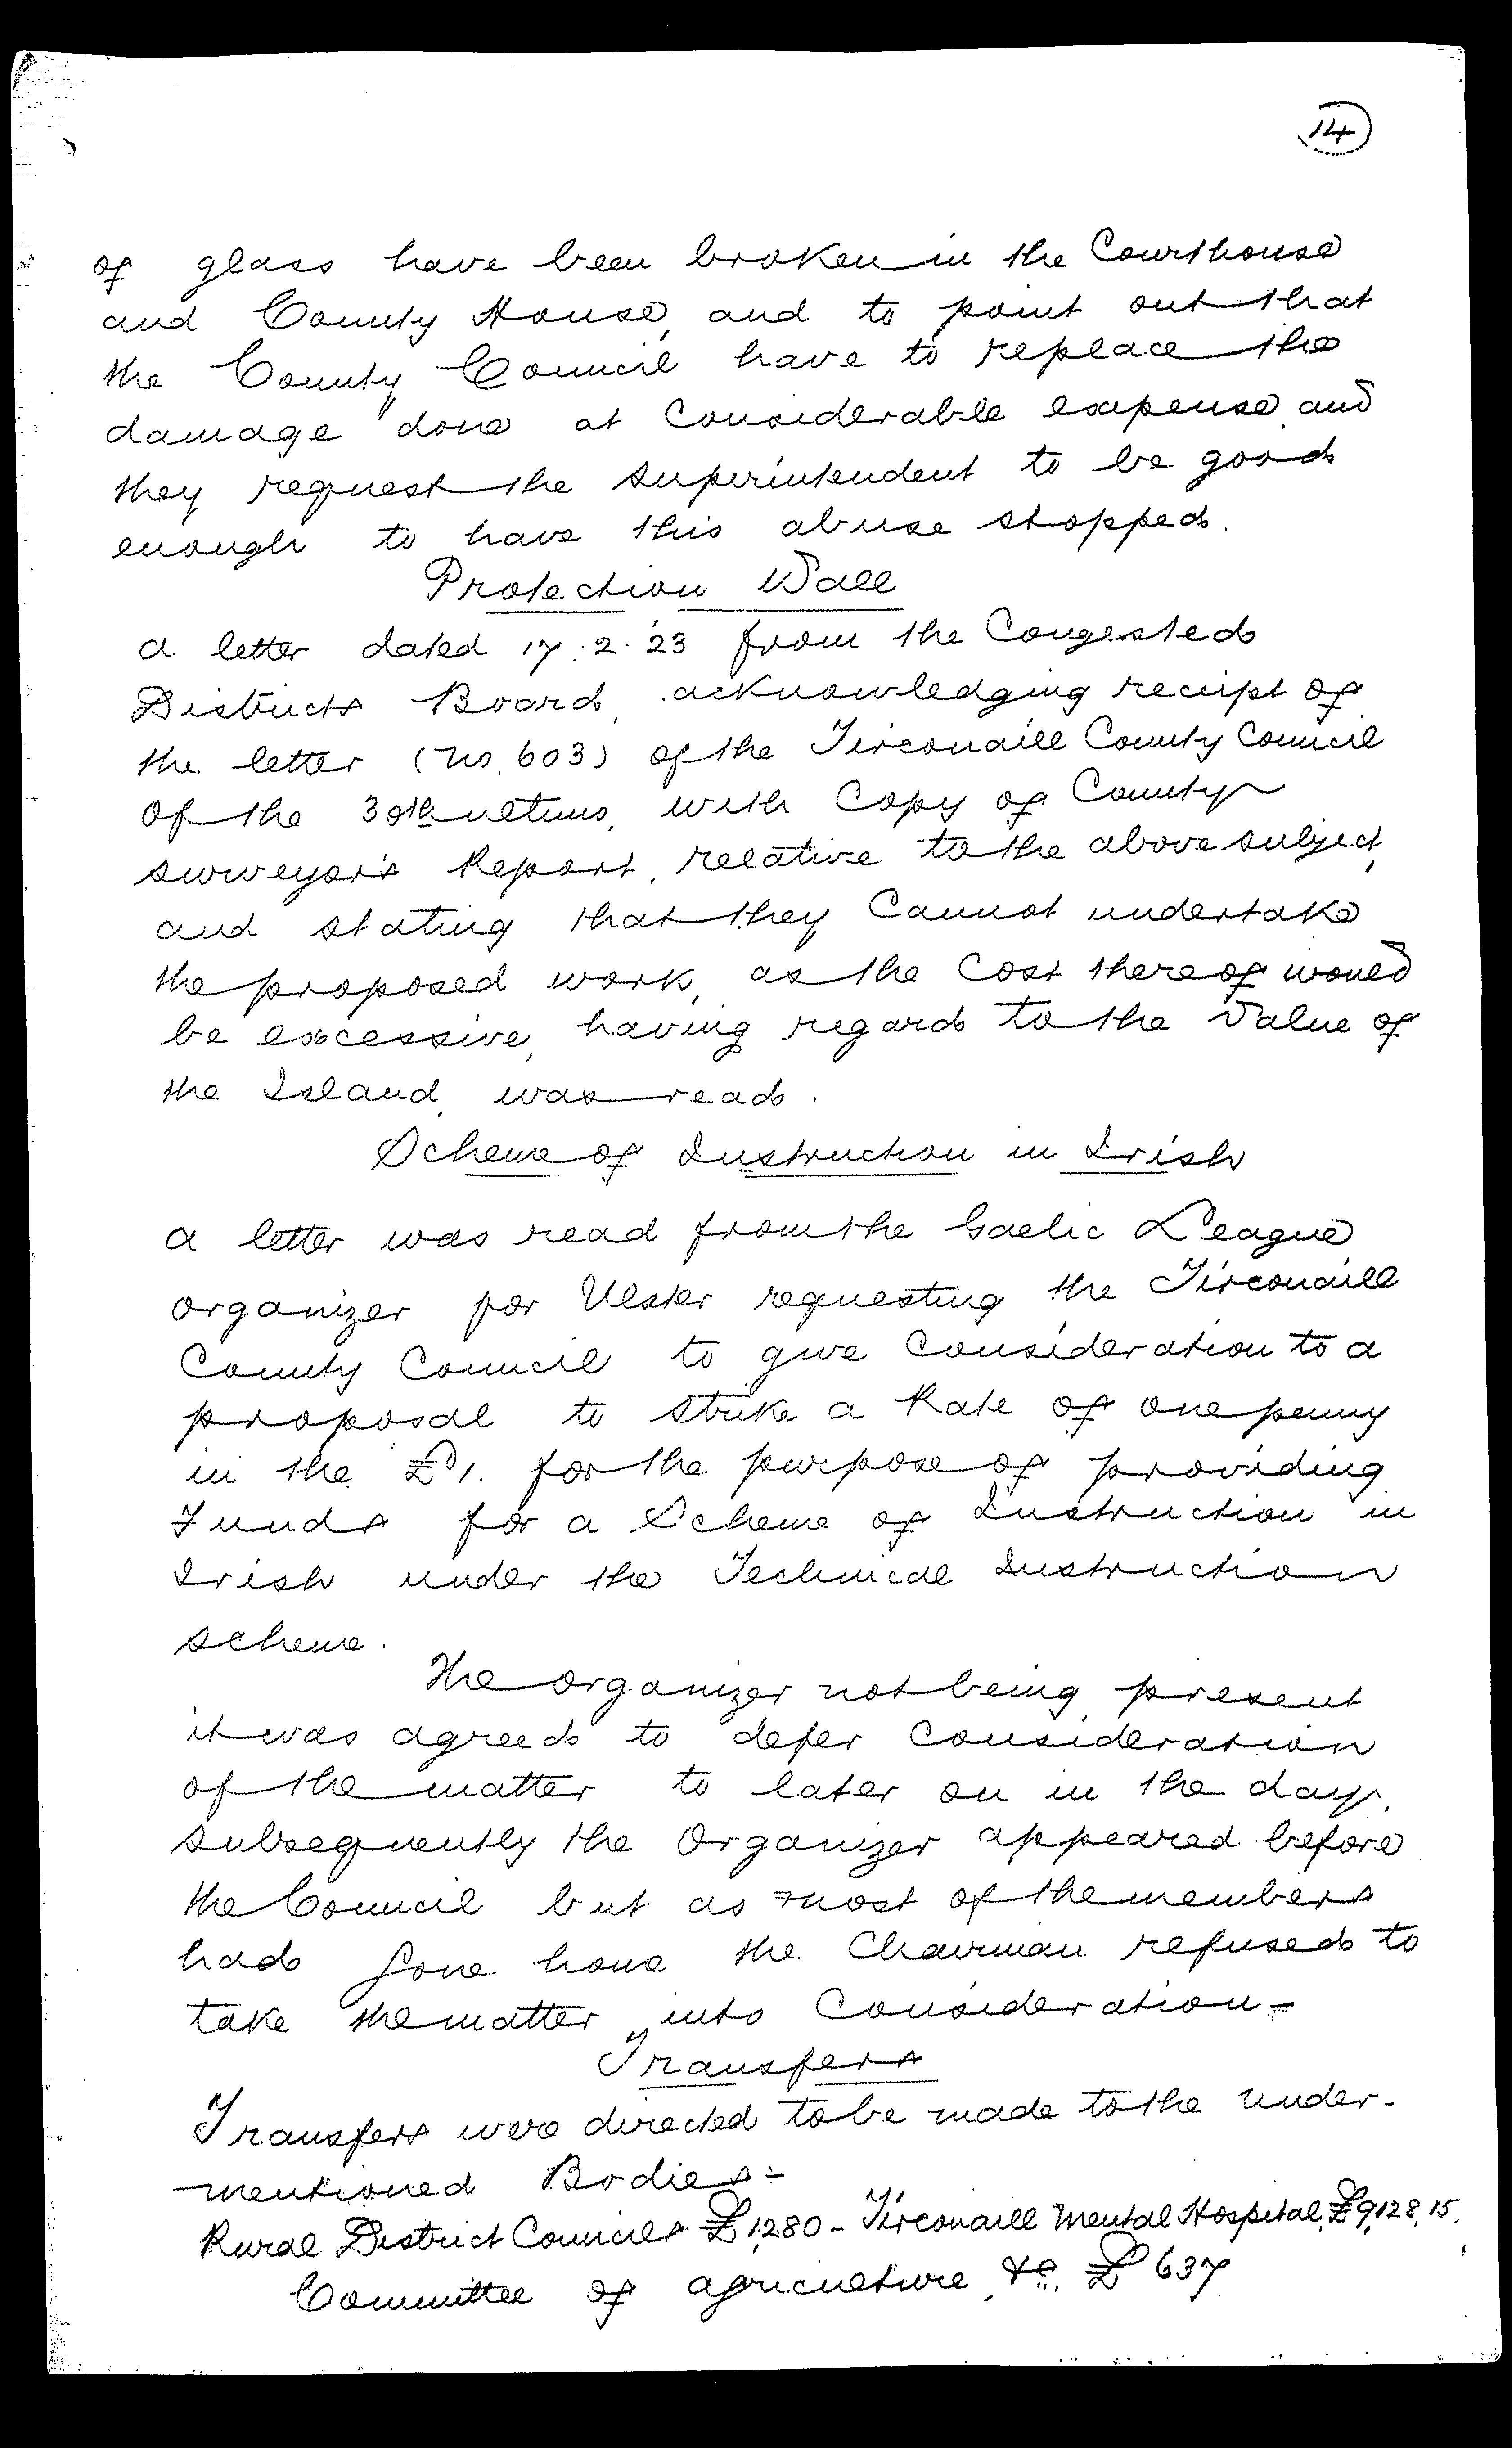 14
of glass have been broken in the Courthouse
and County House, and to point out that
the County Council have to replace the
damage done at Considerable expense, and
they request the superintendent to be good
enough to have this abuse stopped.
Protection Wall
a letter dated 17.2.'23 from the Congested
Districts Board, acknowledging receipt of
the letter (no. 603) of the Tirconaill County Council
of the 30th ultimo, with Copy of County
surveyor's Report, relative to the above subject,
and stating that they Cannot undertake
the proposed work, as the Cost thereof would
be excessive, having regard to the Value of
the Island, was read.
Scheme of Instruction in Irish
a letter was read from the Gaelic League
organizer for Ulster requesting the Tirconaill
County Council to give Consideration to a
proposal to strike a Rate of one penny
in the £1. for the purpose of providing
Funds for a Scheme of Instruction in
Irish under the Technical Instruction
scheme.
The organizer not being present
it was agreed to defer Consideration
of the matter to later on in the day.
subsequently the Organizer appeared before
the Council but as most of the members
had gone home the Chairman refused to
take the matter into Consideration-
Transfers
Transfers were directed to be made to the under-
mentioned Bodies:-
Rural District Councils £1,280 - Tirconaill Mental Hospital, £9,128,15,
Committee of agriculture, &c. £637